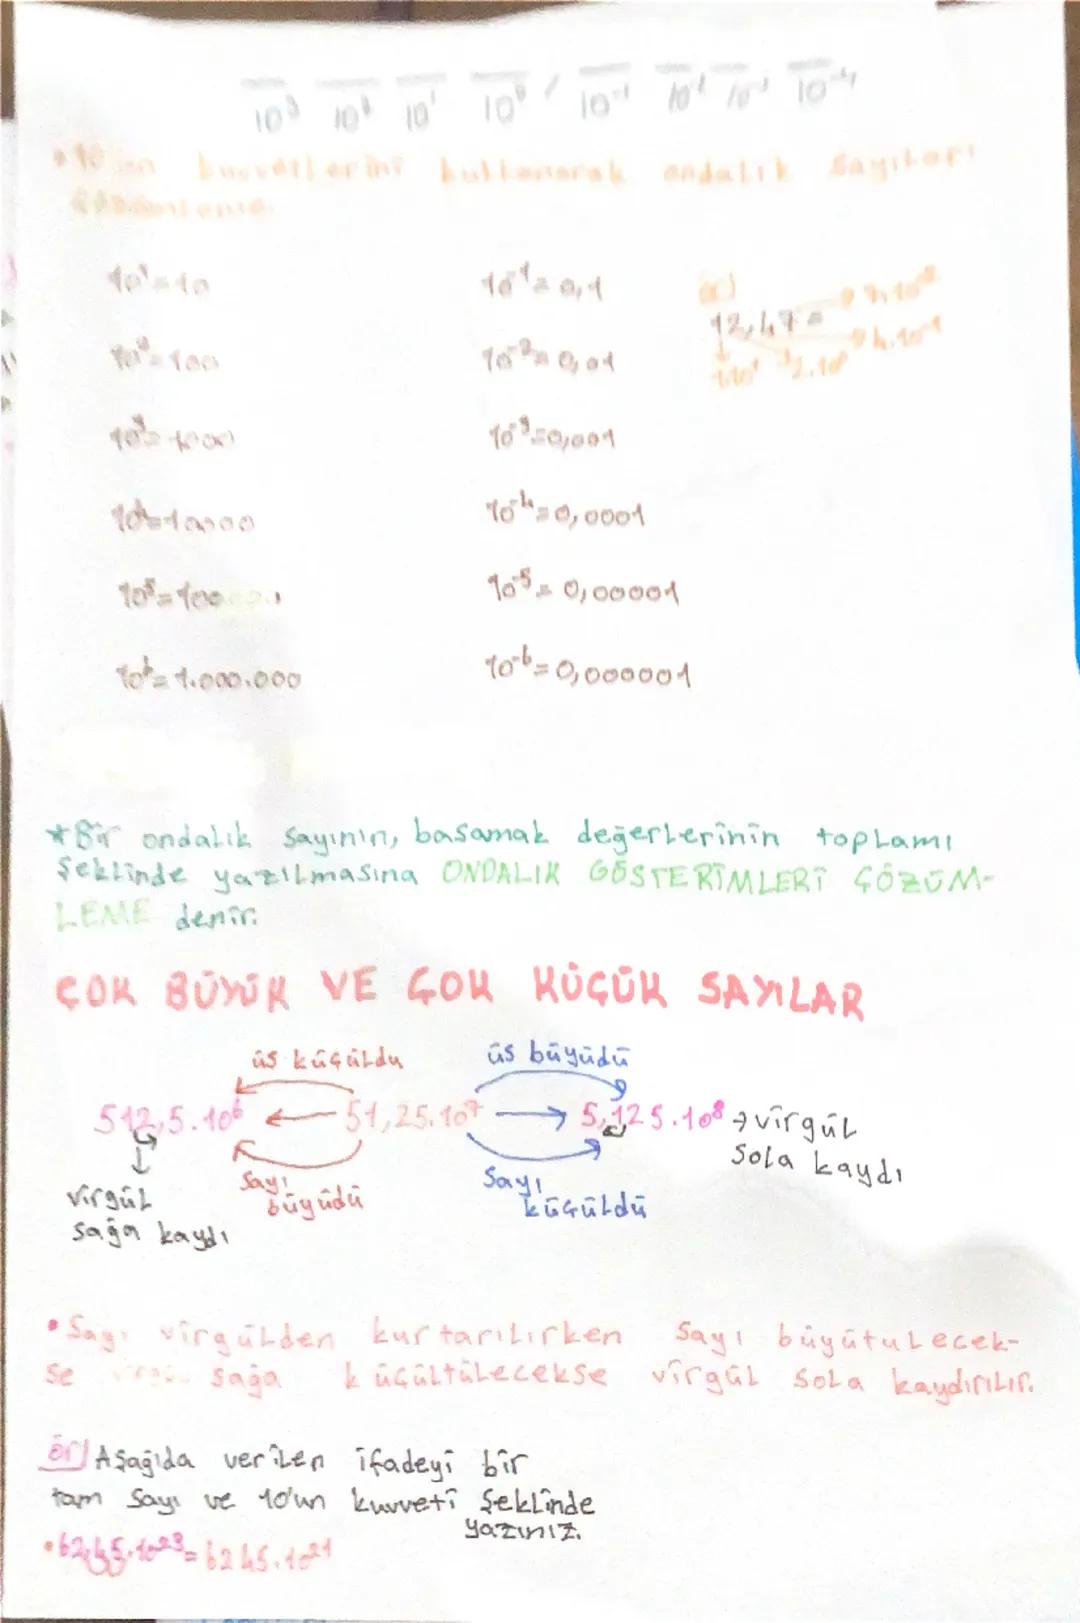 10³ 10² 10¹ 10⁰ , 10⁻¹ 10⁻² 10⁻³ 10⁻⁴
• 10'un kuvvetlerini kullanarak ondalık sayıları
çözümleme
10¹=10 10⁻¹=0,1
10²=100 10⁻²=0,01
10³=1000 10⁻³=0,001
10⁴=10000 10⁻⁴=0,0001
10⁵=100 10⁻⁵=0,00001
10⁶=1.000.000 10⁻⁶=0,000001
ör)
12,47= 7.10⁻²
4.10⁻¹
1.10¹ 2.10⁰
*Bir ondalık sayının, basamak değerlerinin toplamı
şeklinde yazılmasına ONDALIK GÖSTERİMLERİ ÇÖZÜM-
LEME denir.
ÇOK BÜYÜK VE ÇOK KÜÇÜK SAYILAR
üs küçüldü üs büyüdü
512,5.10⁶ ← 51,25.10⁷ → 5,125.10⁸ → virgül
sola kaydı
virgül
sağa kaydı
Sayı
büyüdü
Sayı
küçüldü
• Sayı virgülden kurtarılırken sayı büyütülecek-
se sağa küçültülecekse virgül sola kaydırılır.
ör) Aşağıda verilen ifadeyi bir
tam sayı ve 10'un kuvveti şeklinde
yazınız.
• 62,45.10²³=6245.10²¹